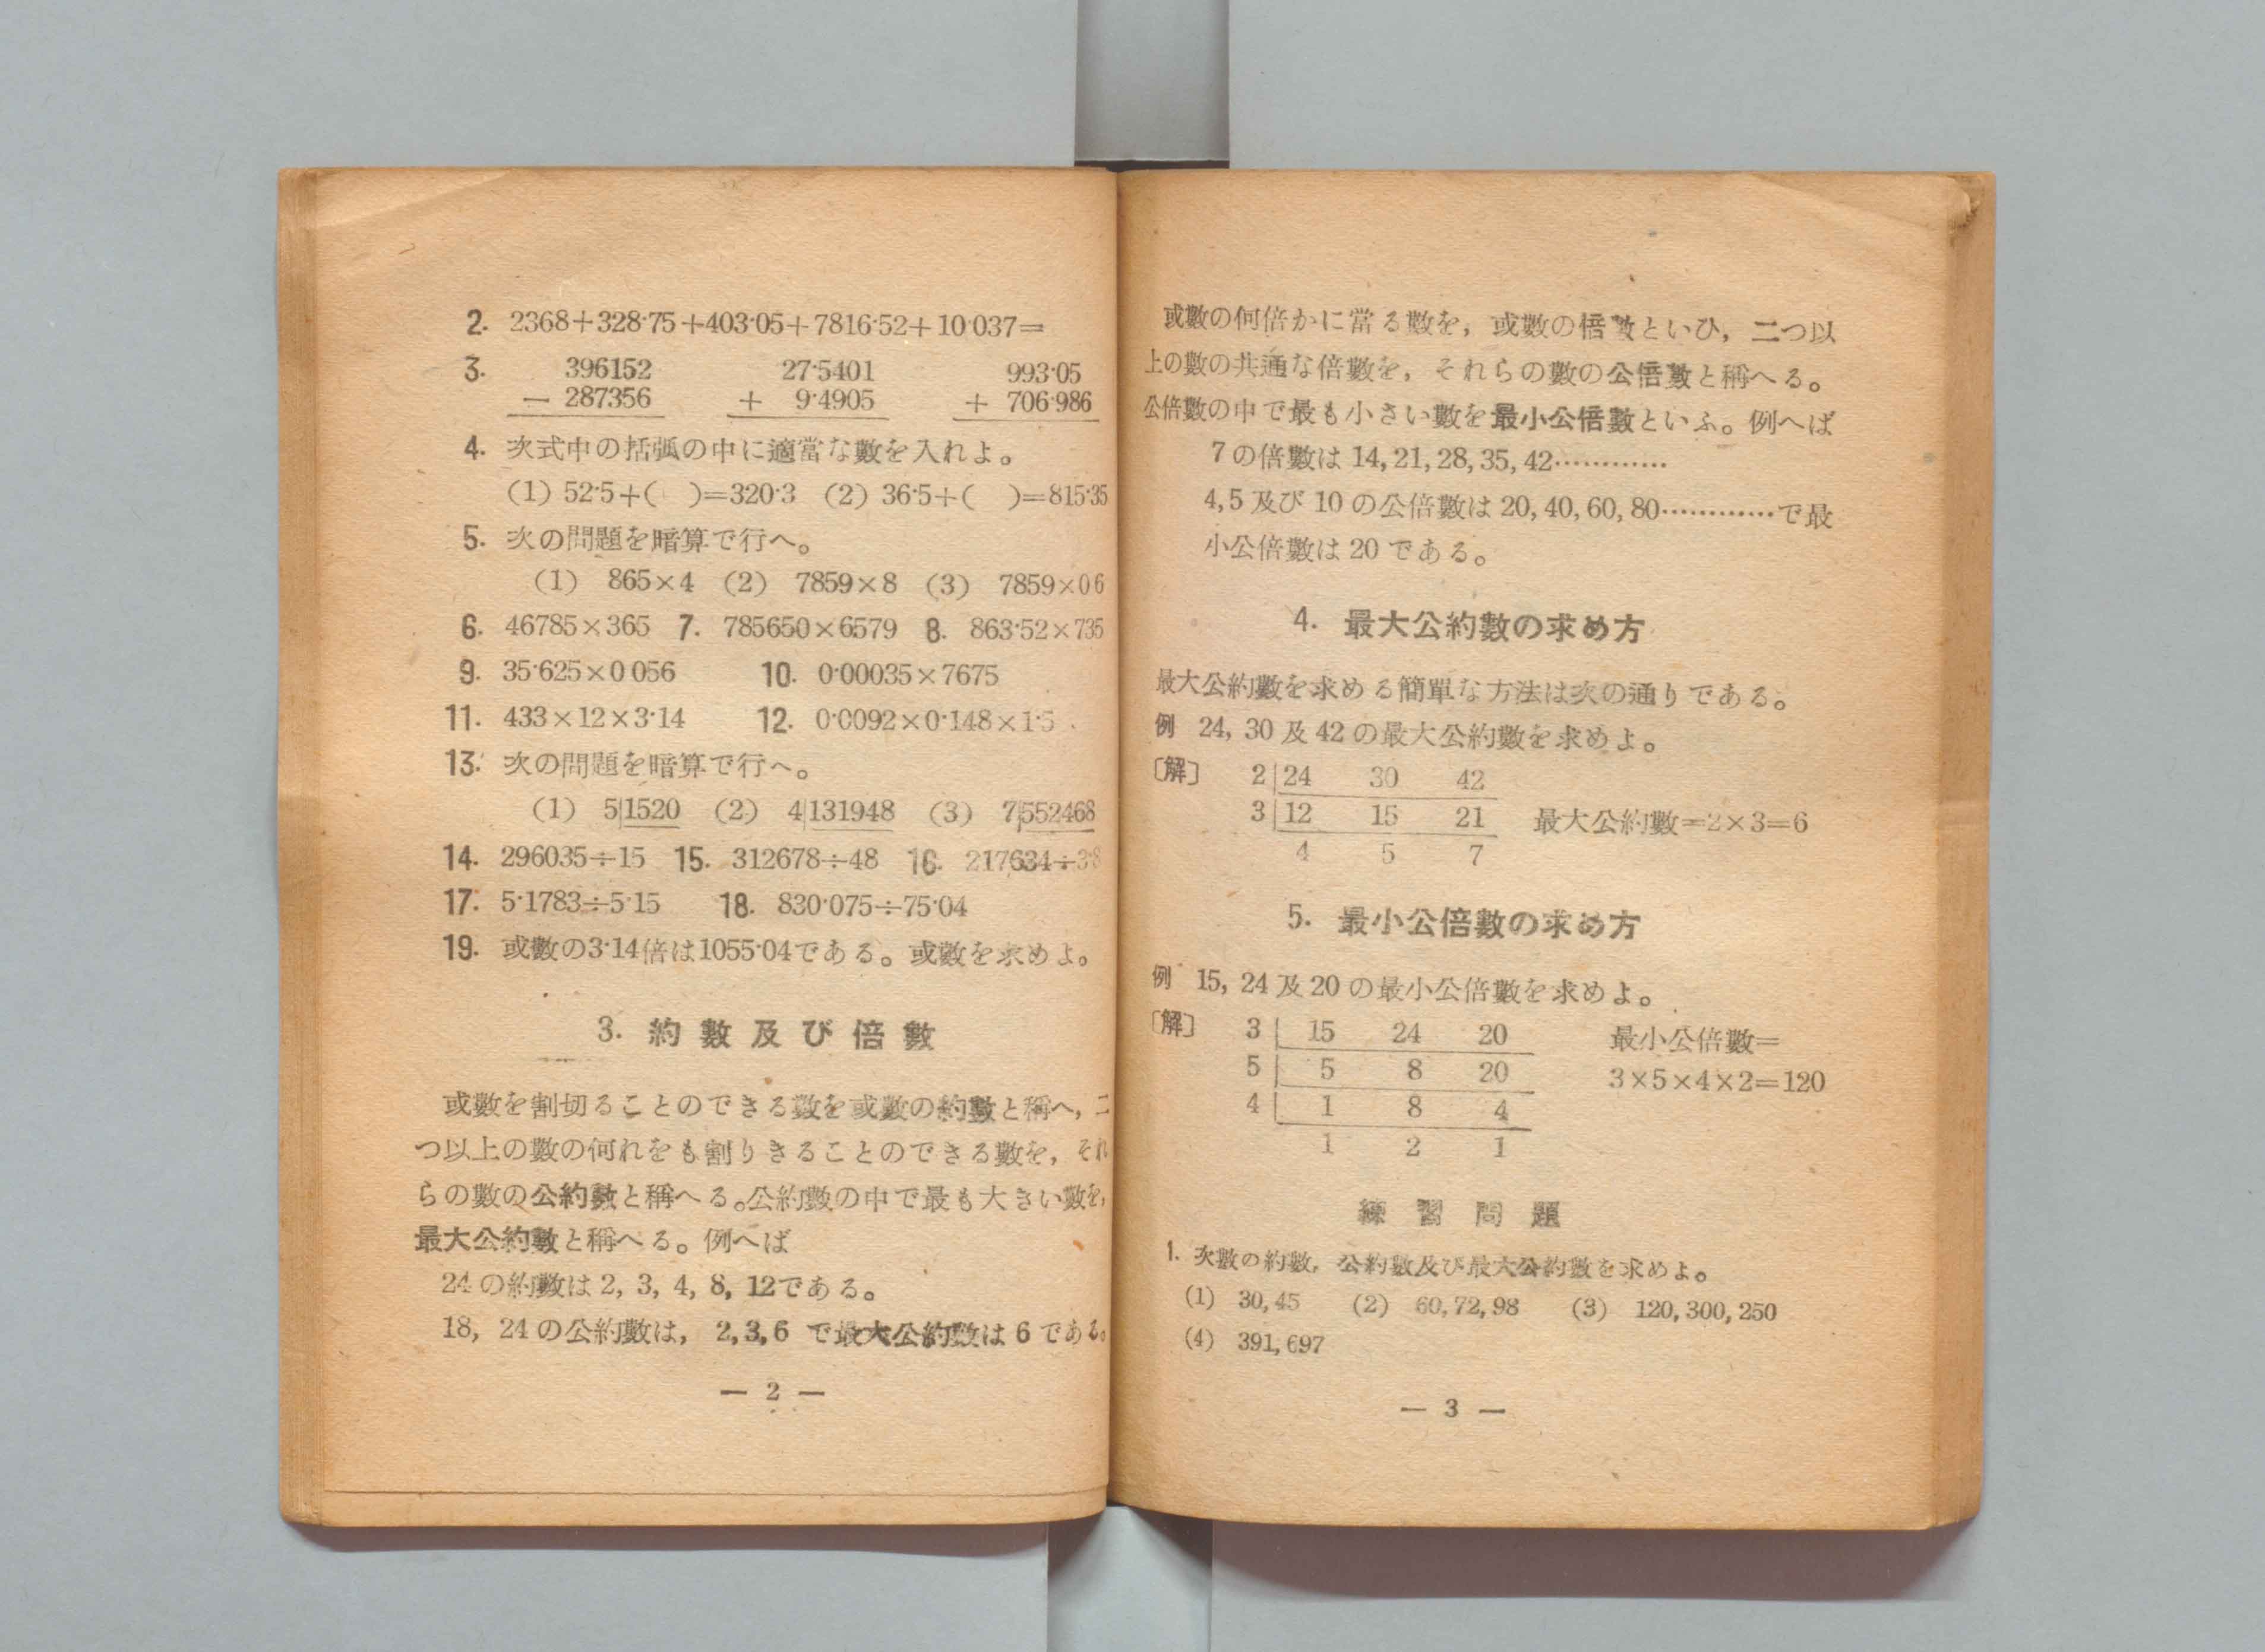 2. 2368+328·75+403·05+7816·52+10·037=
3. 396152 27·5401 993·05
− 287356 + 9·4905 + 706·986
4. 次式中の括弧の中に適當な數を入れよ。
(1) 52·5+( )=320·3 (2) 36·5+( )=815·35
5. 次の問題を暗算で行へ。
(1) 865×4 (2) 7859×8 (3) 7859×0 6
6. 46785×365 7. 785650×6579 8. 863·52×735
9. 35·625×0 056 10. 0·00035×7675
11. 433×12×3·14 12. 0·0092×0·148×1·5
13. 次の問題を暗算で行へ。
(1) 5|1520 (2) 4|131948 (3) 7|552468
14. 296035÷15 15. 312678÷48 16. 217634÷3·8
17. 5·1783÷5·15 18. 830·075÷75·04
19. 或數の3·14倍は1055·04である。或數を求めよ。
3. 約數及び倍數
或數を割切ることのできる數を或數の約數と稱へ, 二
つ以上の數の何れをも割りきることのできる數を, それ
らの數の公約數と稱へる。公約數の中で最も大きい數を,
最大公約數と稱へる。例へば
24の約數は2, 3, 4, 8, 12である。
18, 24の公約數は, 2,3,6 で最大公約數は6である。
— 2 —
或數の何倍かに當る數を, 或數の倍數といひ, 二つ以
上の數の共通な倍數を, それらの數の公倍數と稱へる。
公倍數の中で最も小さい數を最小公倍數といふ。例へば
7の倍數は14, 21, 28, 35, 42…………
4, 5及び10の公倍數は20, 40, 60, 80…………で最
小公倍數は20である。
4. 最大公約數の求め方
最大公約數を求める簡單な方法は次の通りである。
例 24, 30及42の最大公約數を求めよ。
〔解〕 2|24 30 42
3|12 15 21 最大公約數=2×3=6
4 5 7
5. 最小公倍數の求め方
例 15, 24及20の最小公倍數を求めよ。
〔解〕 3| 15 24 20 最小公倍數=
5| 5 8 20 3×5×4×2=120
4| 1 8 4
1 2 1
練習問題
1. 次數の約數, 公約數及び最大公約數を求めよ。
(1) 30, 45 (2) 60, 72, 98 (3) 120, 300, 250
(4) 391, 697
— 3 —